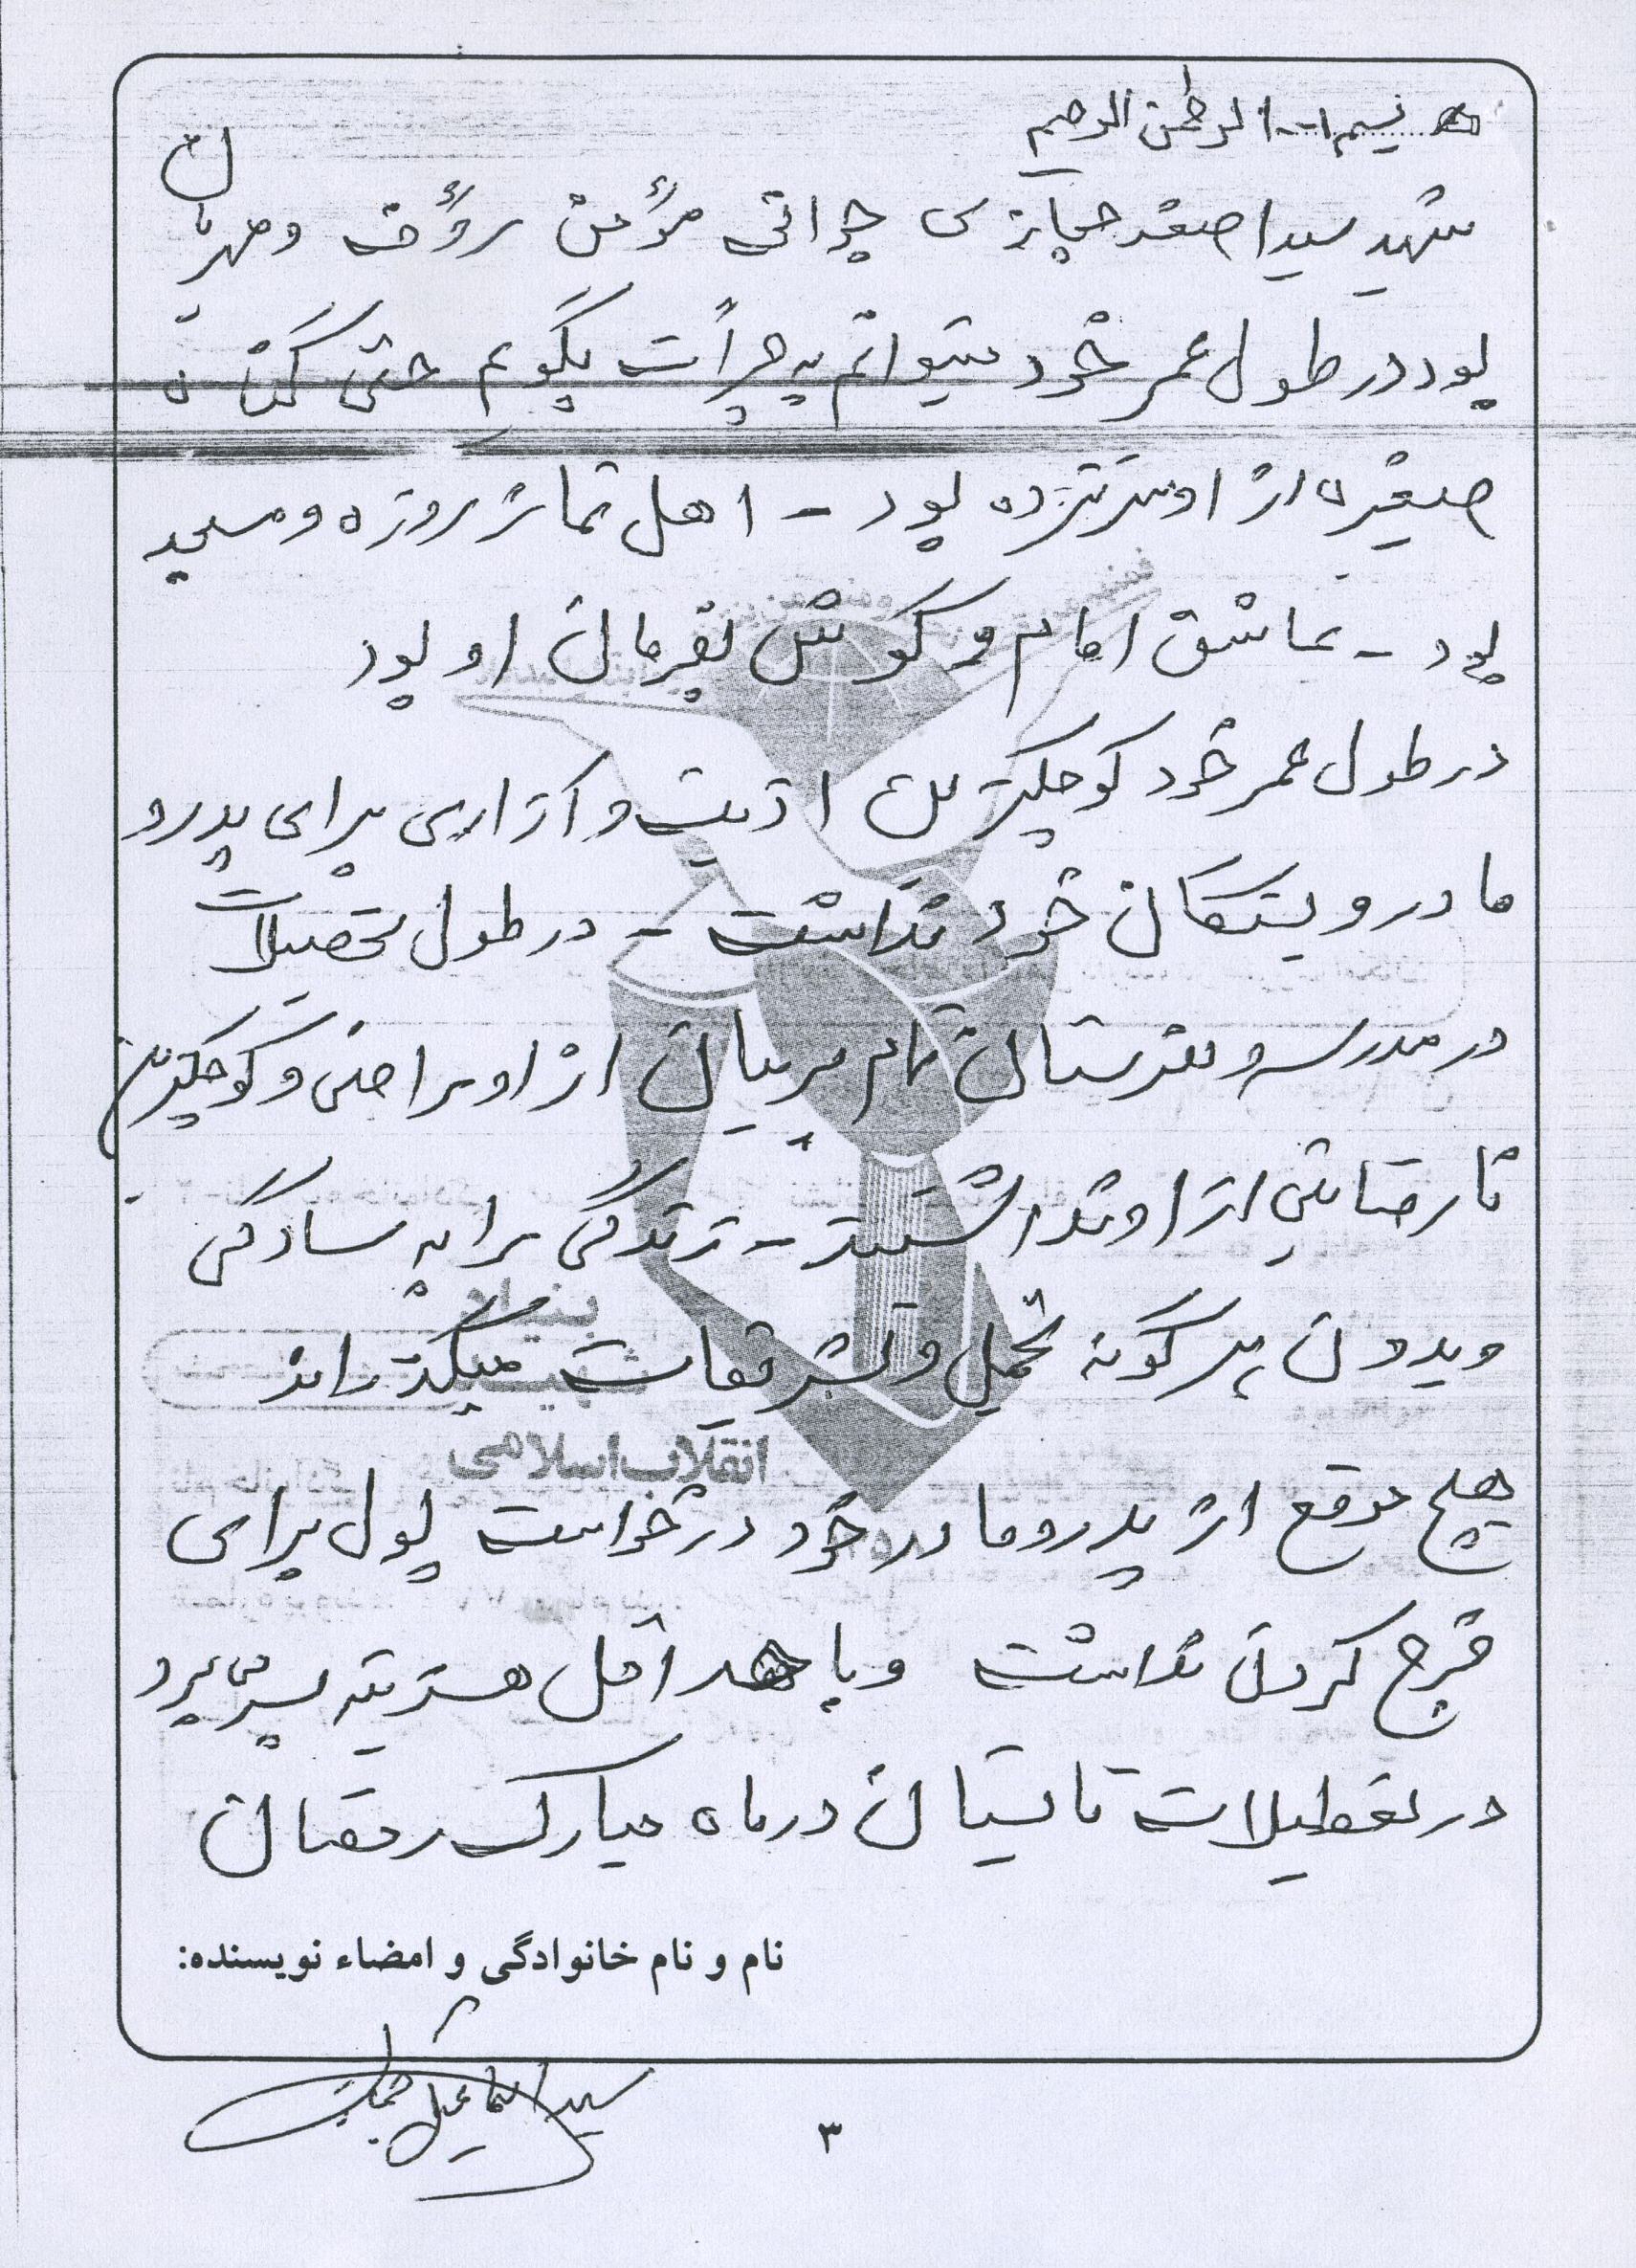 بسم ا... الرحمن الرحیم
شهید سید اصغر حجازی جوانی مؤمن رؤف و مهربان
بود در طول عمر خود میتوانم به جرأت بگویم حتی گناه
صغیره از او سر نزده بود - اهل نماز روزه و مسجد
بود - عاشق امام و گوش بفرمان او بود
در طول عمر خود کوچکترین اذیت و آزاری برای پدر و
مادر و بستگان خود نداشت - در طول تحصیلات
در مدرسه و هنرستان تمام مربیان از او راضی و کوچکترین
نارضایتی از او نداشتند - زندگی را به سادگی
و بدون هر گونه تجمل و تشریفات میگذراند
هیچ موقع از پدر و مادر خود درخواست پول برای
خرج کردن نداشت و با حداقل هزینه بسر می برد
در تعطیلات تابستان در ماه مبارک رمضان
بنیاد
شهید
انقلاب اسلامی
نام و نام خانوادگی و امضاء نویسنده:
سید اسماعیل
۳